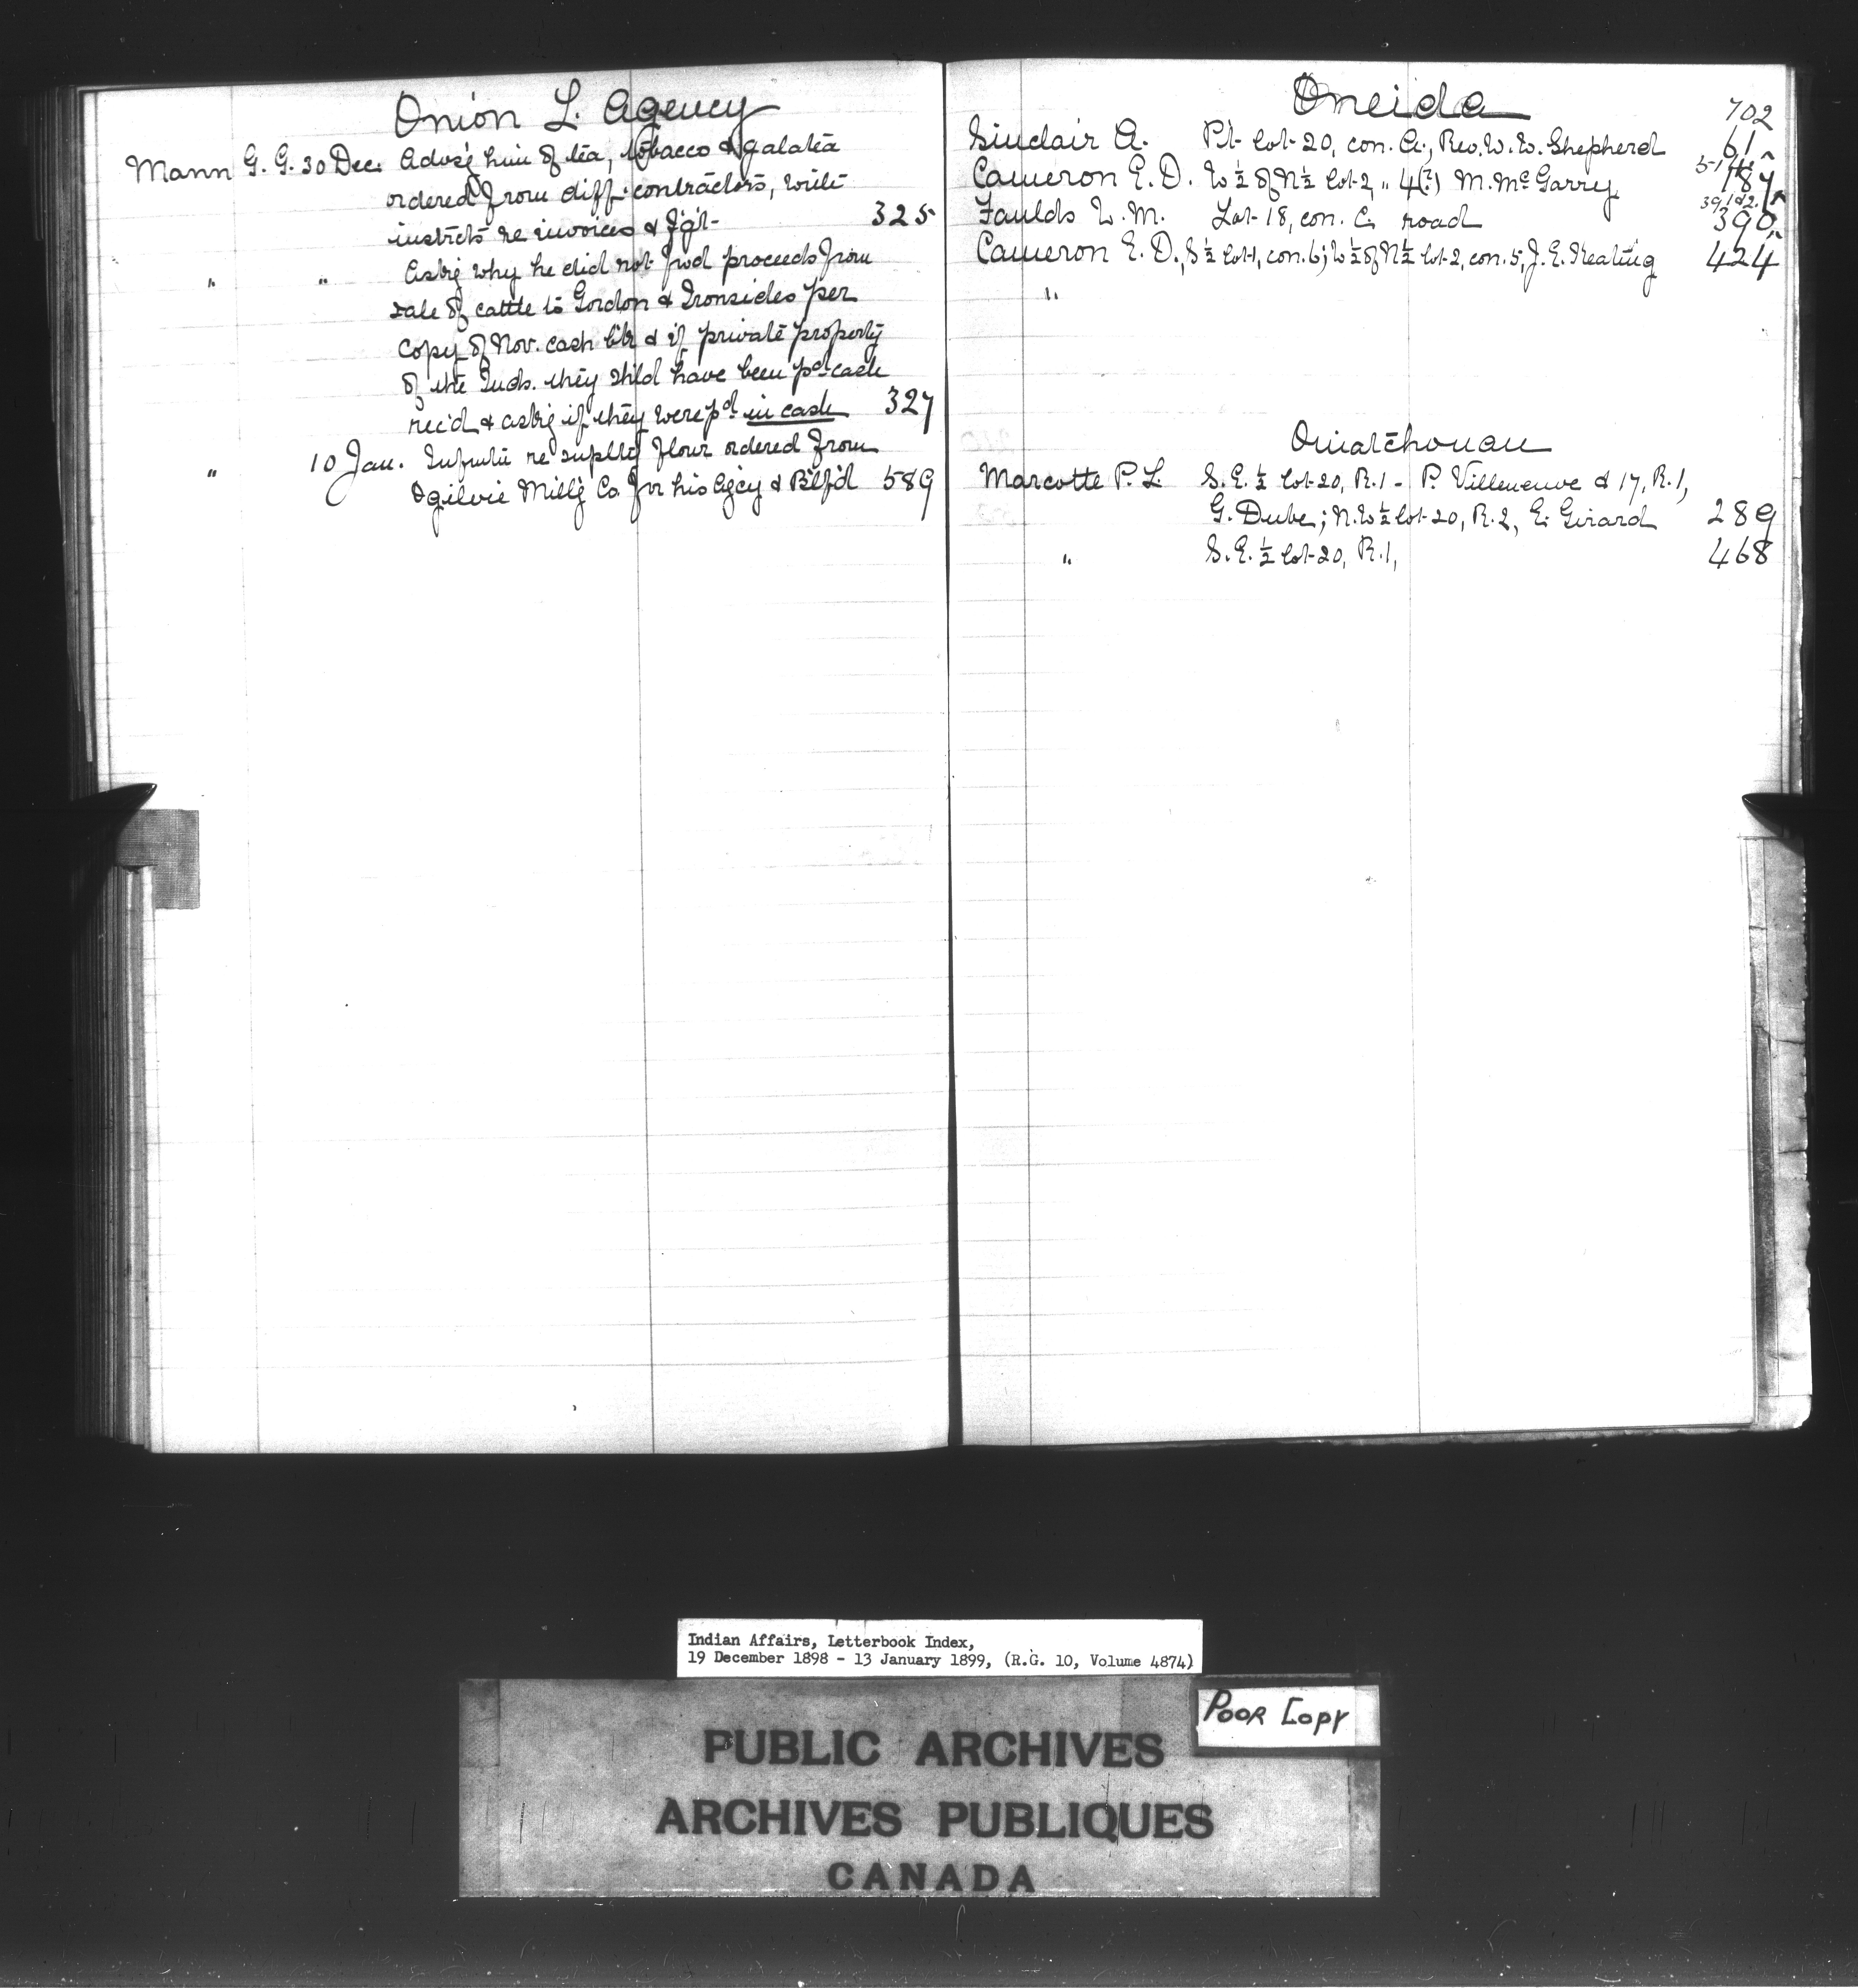 Onion L. Agency
Mann G. G. 30 Dec. Advs'g him of tea, tobacco & galatea
ordered from diff. contractors, with
instrcts re invoices & f'g't 325
" " Ask'g why he did not fwd proceeds from
sale of cattle to Gordon & Ironsides per
copy of Nov. cash b'k & if private property
of the Inds. they sh'ld have been p'd cash
rec'd & ask'g if they were p'd in cash 327
" 10 Jan. re flour ordered from
Ogilvie Mill'g Co. for his Agcy & 589
Oneida
702
Sinclair A. Pt. lot 20, con. A., Rev. W. W. Shepherd 61
Cameron E. D. W ½ of N ½ lot 2, " 4(?) M. McGarry 187
Faulds W. M. Lot 18, con. C. road 390
Cameron E. D., S ½ lot 1, con. 6; W ½ of N ½ lot 2, con. 5, J. E. Keating 424
"
Ouiatchouan
Marcotte P. L. S. E. ½ lot 20, R. 1 - P. Villeneuve & 17, R. 1,
G. Dube; N. W ½ lot 20, R. 2, E. Girard 289
" S. E. ½ lot 20, R. 1, 468
Indian Affairs, Letterbook Index,
19 December 1898 - 13 January 1899, (R.G. 10, Volume 4874)
POOR COPY
PUBLIC ARCHIVES
ARCHIVES PUBLIQUES
CANADA